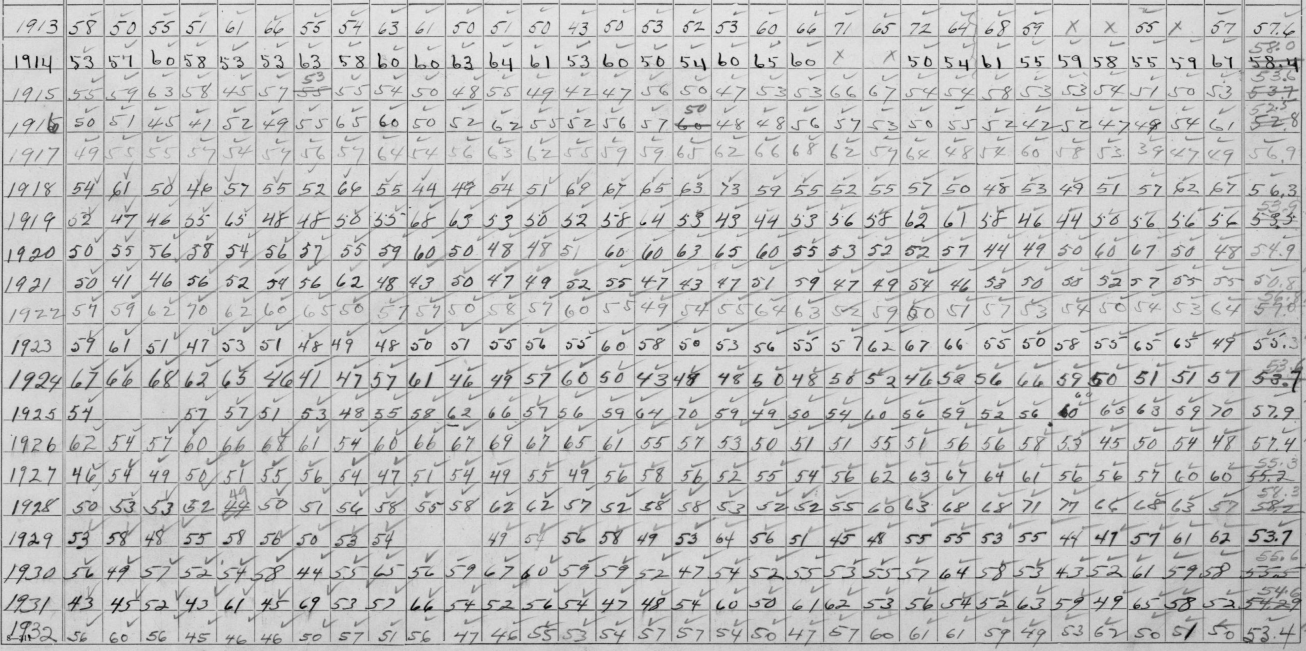 1913 58 50 55 51 61 66 55 54 63 61 50 51 50 43 50 53 52 53 60 66 71 65 72 64 68 59 x x 55 x 57 57.6
58.0
1914 53 57 60 58 53 53 63 58 60 60 63 64 61 53 60 50 54 60 65 60 x x 50 54 61 55 59 58 55 59 67 58.4
53 53.6
1915 55 59 63 58 45 57 55 55 54 50 48 55 49 42 47 56 50 47 53 53 66 67 54 54 58 53 53 54 51 50 53 53.7
50 52.5
1916 50 51 45 41 52 49 55 65 60 50 52 62 55 52 56 57 60 48 48 56 57 53 50 55 52 42 52 47 49 54 61 52.8
1917 49 55 55 57 54 57 56 57 64 54 56 63 62 55 59 59 65 62 66 68 62 57 64 48 54 60 58 53 39 47 49 56.9
1918 54 61 50 46 57 55 52 66 55 44 49 54 51 69 67 65 63 73 59 55 52 55 57 50 48 53 49 51 57 62 67 56.3
1919 52 47 46 55 65 48 48 50 55 68 63 53 50 52 58 64 53 43 44 53 56 58 62 61 58 46 44 50 56 56 56 53.5
1920 50 55 56 58 54 56 57 55 59 60 50 48 48 51 60 60 63 65 60 55 53 52 52 57 44 49 50 60 67 50 48 54.9
1921 50 41 46 56 52 59 56 62 48 43 50 47 49 52 55 47 43 47 51 59 47 49 54 46 53 50 55 52 57 55 55 50.8
1922 57 59 62 70 62 60 65 50 57 57 50 58 57 60 55 49 54 55 64 63 52 59 60 51 57 53 54 50 54 53 64 57.0
1923 59 61 51 47 53 51 48 49 48 50 51 55 56 55 60 58 50 53 56 55 57 62 67 66 55 50 58 55 65 65 49 55.3
1924 67 66 68 62 65 46 41 47 57 61 46 49 57 60 50 43 49 48 50 48 50 52 46 52 56 66 59 50 51 51 57 53.7
60
1925 54 57 57 51 53 48 55 58 62 66 57 56 59 64 70 59 49 50 54 60 56 59 52 56 60 65 63 59 70 57.9
1926 62 54 57 60 66 68 61 54 60 66 67 69 67 65 61 55 57 53 50 51 51 55 51 56 56 58 53 45 50 54 48 57.4
55.3
1927 46 54 49 50 51 55 56 54 47 51 54 49 55 49 56 58 56 52 55 54 56 62 63 67 64 61 56 56 57 60 60 55.2
49 58.3
1928 50 53 53 52 44 50 51 56 58 55 58 62 62 57 52 58 58 53 52 52 55 60 63 68 68 71 71 66 68 63 57 58.2
1929 53 58 48 55 58 56 50 53 54 49 51 56 58 49 53 64 56 51 45 48 55 55 53 55 44 47 57 61 62 53.7
55.6
1930 56 49 57 52 54 58 44 55 65 56 59 67 60 59 59 52 47 54 52 55 53 55 57 64 58 53 43 52 61 59 58 55.5
54.6
1931 43 45 52 43 61 45 69 53 57 66 54 52 56 54 47 48 54 60 50 61 62 53 56 54 52 63 59 49 65 58 52 54.29
1932 56 60 56 45 46 46 50 57 51 56 47 46 55 53 54 57 57 54 50 47 57 60 61 61 59 49 53 62 50 51 50 53.4